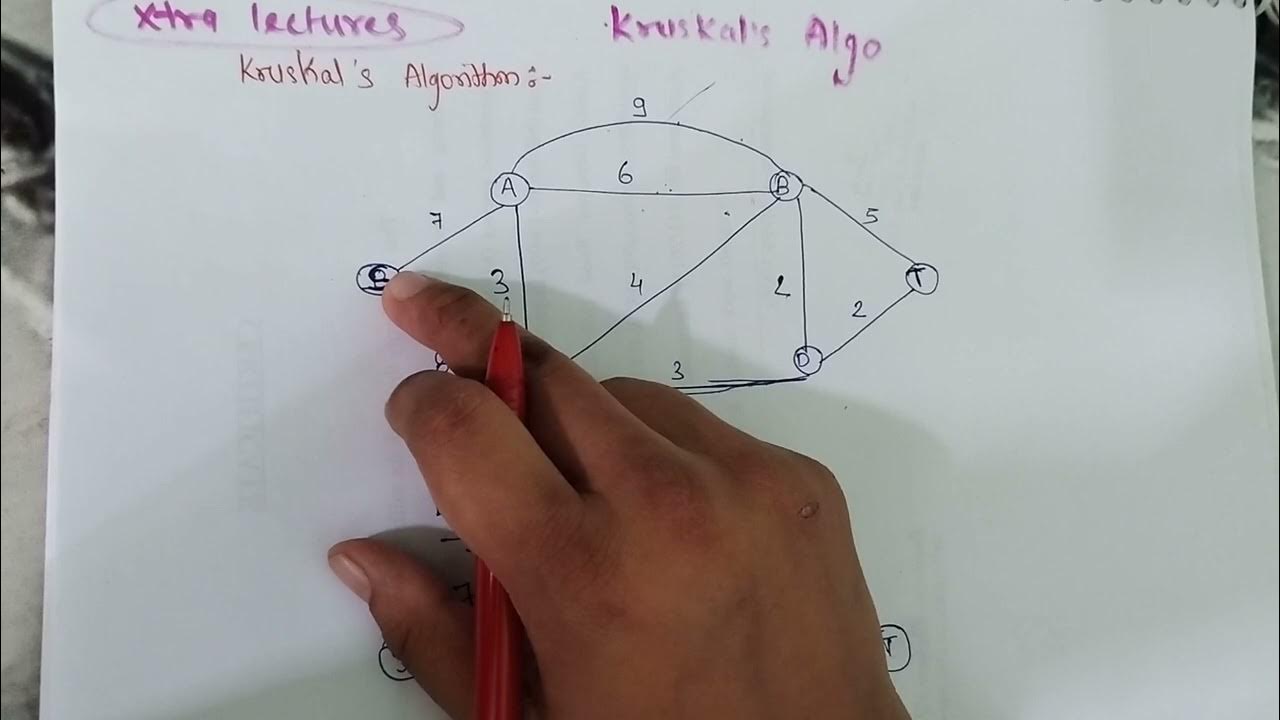 Xtra lectures
Kruskal's Algo
Kruskal's Algorithm :-
9
A 6 B
7 5
3 4 2 T
2
8 D
3
7
T